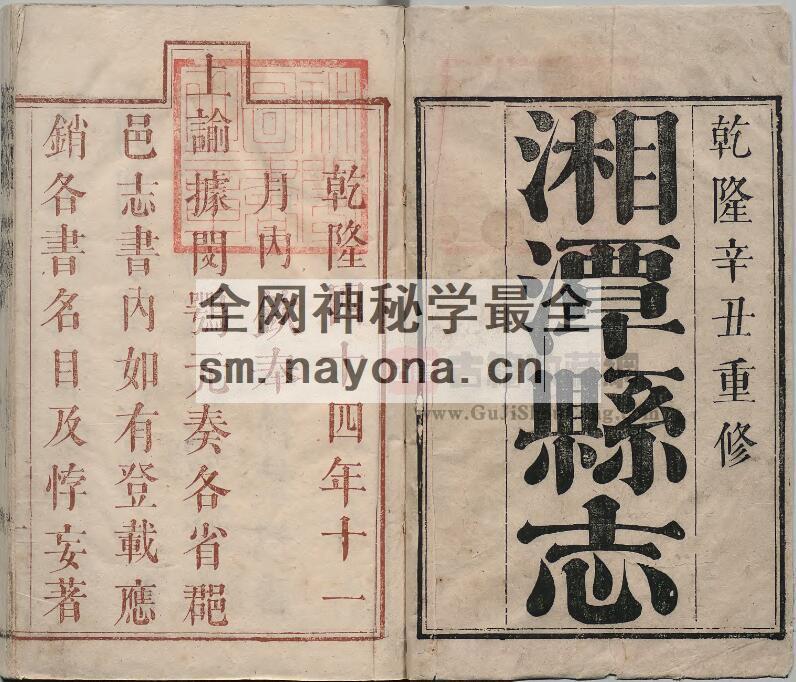 乾隆辛丑重修
湘潭縣志
乾隆四十四年十一
月內欽奉
上諭據閔鶚元奏各省郡
邑志書內如有登載應
銷各書名目及悖妄著
全网神秘学最全
sm.nayona.cn
www.GuJiShu